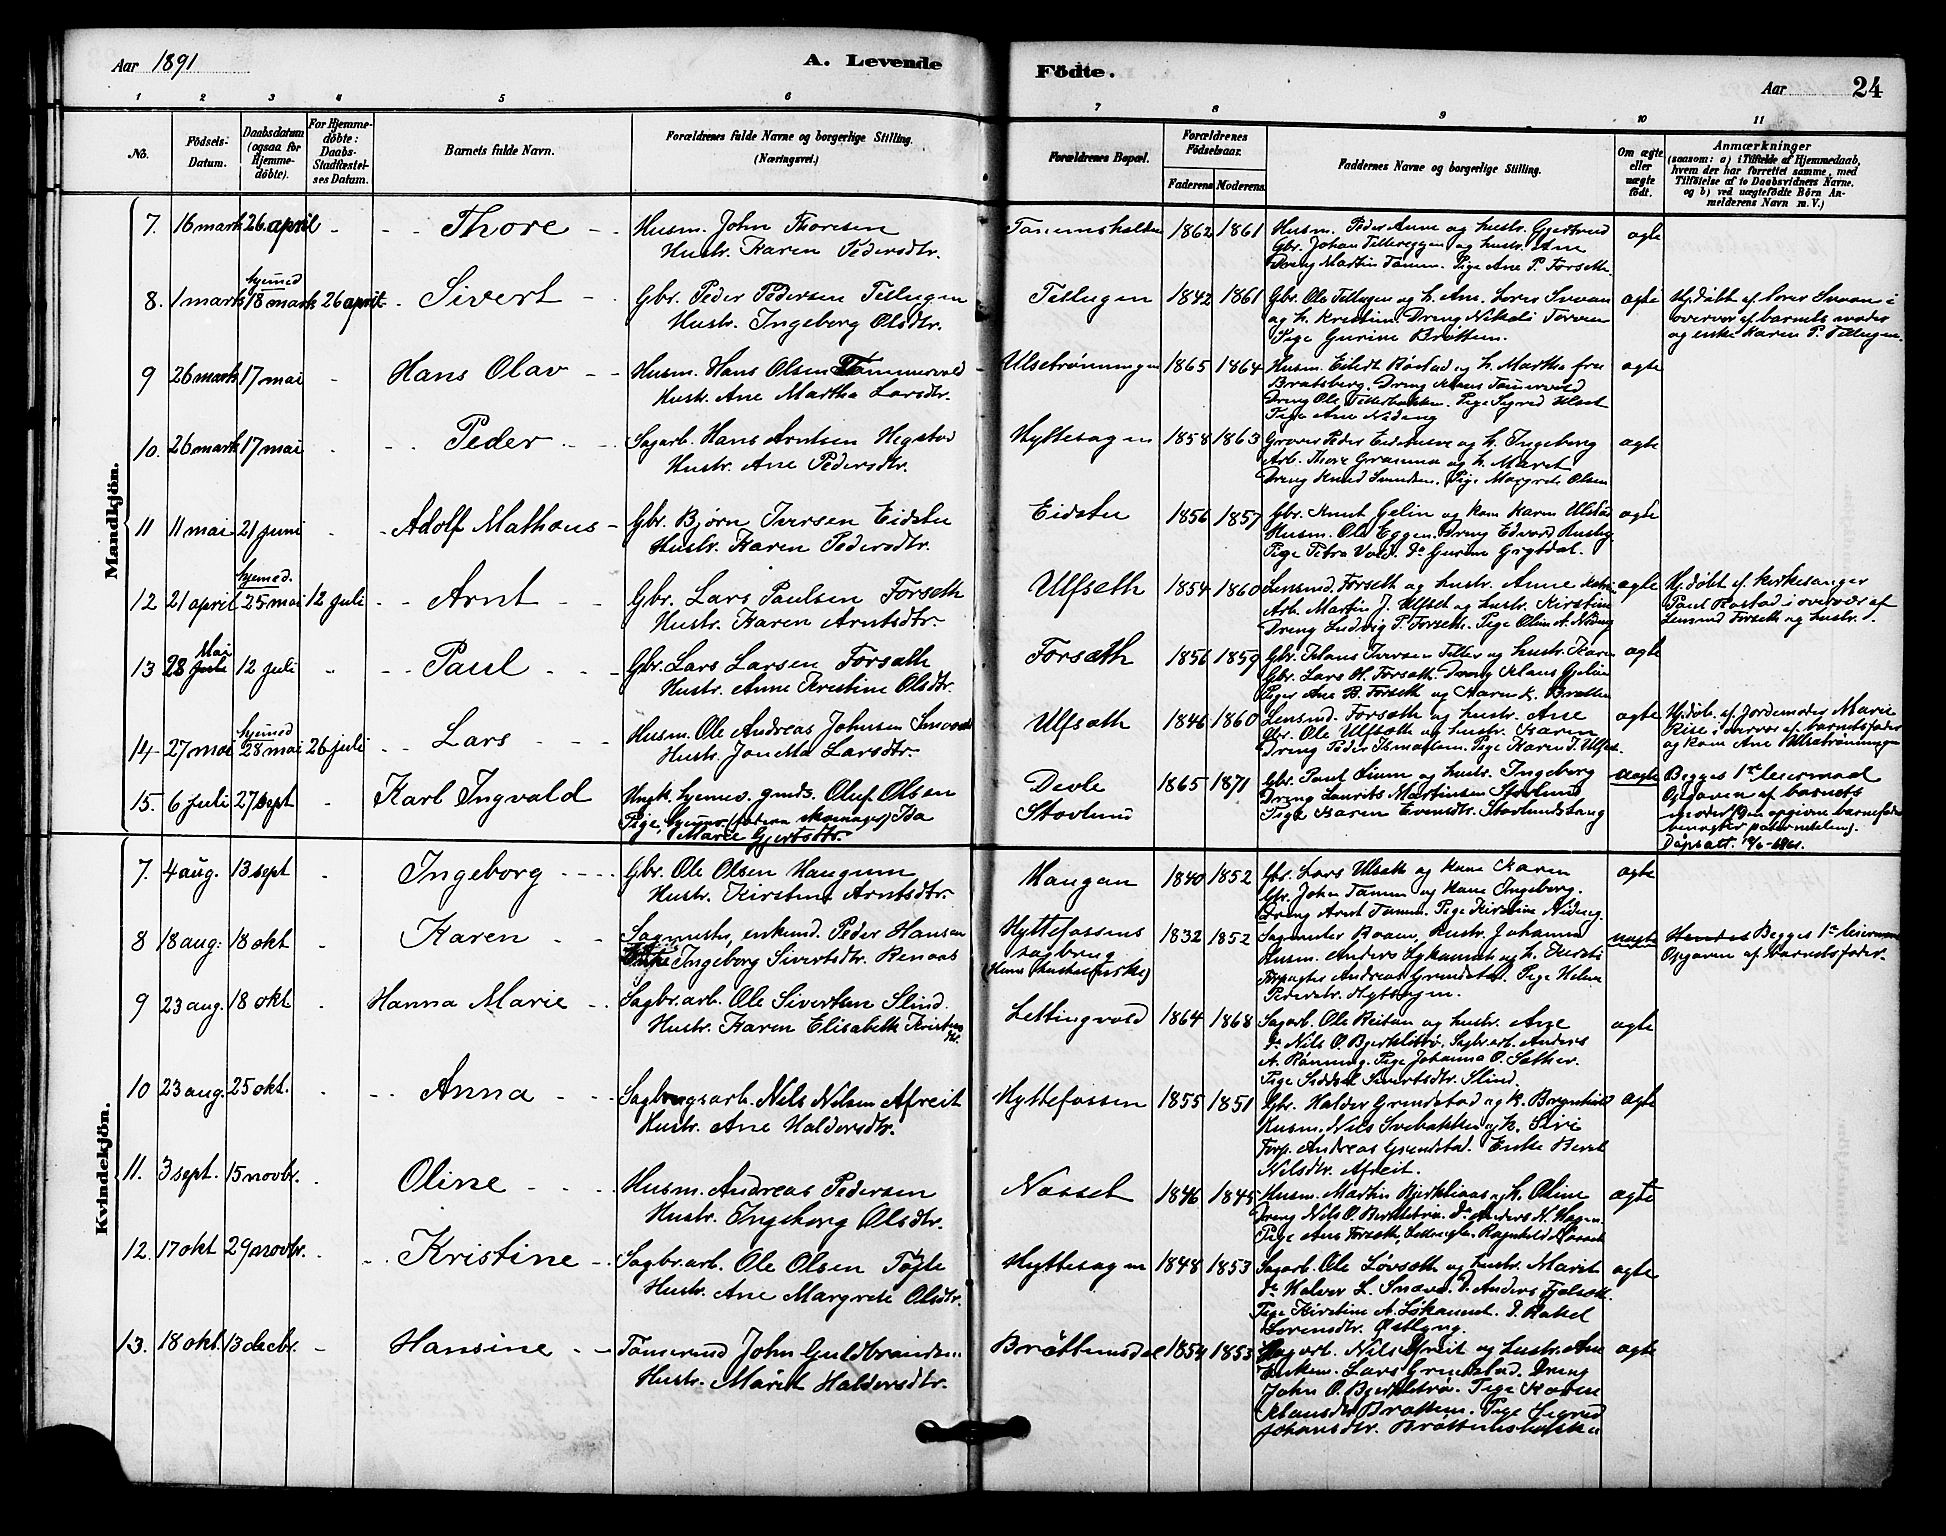 Aar 1891
A. Levende
Födte.
Aar
24
1 2 3 4 5 6 7 8 9 10 11
No.
Födsels-Datum.
Daabsdatum (ogsaa for Hjemmedöbte).
For Hjemmedöbte: Daabs-Stadfæstelses Datum.
Barnets fulde Navn.
Forældrenes fulde Navne og borgerlige Stilling. (Næringsvei.)
Forældrenes Bopæl.
Forældrenes Födselsaar.
Faderens Moderens
Faddernes Navne og borgerlige Stilling.
Om ægte eller uægte födt.
Anmærkninger
(saasom: a) i Tilfælde af Hjemmedaab,
hvem der har forrettet samme, med
Tilföielse af to Daabsvidners Navne,
og b) ved uægtefödte Börn Anmelderens Navn m.V.)
Mandkjön.
7. 16 mark 26 april - Thore - Husm. John Thoresen
Hustr. Karen Pedersdtr.
1862 1861 Husm. Peder Aune og hustr. Gjertrud
Gbr. Johan Tillereggen og hustr. Ane
Dreng Martin Tanem. Pige Ane P. Forseth.
ægte
8. 1 mark hjemmed 18 mark 26 april Sivert - Gbr. Peder Pedersen Tellugen
Hustr. Ingeborg Olsdtr.
Tellugen 1842 1861 Gbr. Ole Tellugen og h. Ane. Lorer
og h. Kristine. Dreng Nikolai
Pige Gurine Brøttem.
ægte
Hj.døbt af lorer i
overvær af barnets moder
og enke Karen P. Tellugen.
9 26 mark 17 mai - Hans Olav - Husm. Hans Olsen Tømmervold
Hustr. Ane Martha Larsdtr.
Ulsetrønningen 1865 1864 Husm. Eilert Røstad og h. Martha fra
Bratsberg. Dreng Klaus Tømmervold
Dreng Ole Pige Sigrid
Pige Ane Nideng
ægte
10. 26 mark 17 mai - Peder - Sagarb. Hans Arntsen Hegstad
Hustr. Ane Pedersdtr.
Hyttesagen 1858 1863 Peder og h. Ingeborg
Arb. Thore Gramma og h. Maret
Dreng Knud Pige Margrete Olsen
ægte
11 11 mai 21 juni - Adolf Mathæus - Gbr. Bjørn Iversen Eidstu
Hustr. Karen Pedersdtr.
Eidstu 1856 1857 Gbr. Knut Gelin og kone Karen Ulstad
Husm. Ole Eggen. Dreng Edvard
Pige Petra Vold. Do Gurine
ægte
12 21 april hjemmed. 25 mai 12 juli - Arnt - Gbr. Lars Paulsen Forseth
Hustr. Karen Arntsdtr.
Ulfseth 1854 1860 Lensmd. Forseth og hustr. Anne
Arb. Martin J. Ulfset og hustr. Kirstine
Dreng Ludvig P. Forseth. Pige Oline A. Nideng
ægte
Hj.døbt af kirkesanger
Paul Røstad i overvær af
Lensmd Forseth og hustr.
13 28 Mai juli 12 juli - Paul - Gbr. Lars Larsen Forsæth
Hustr. Anne Kristine Olsdtr.
Forsæth 1856 1859 Gbr. Klaus Iversen Tiller og hustr. Karen
Gbr. Lars H. Forsæth. Dreng Klaus
Piger Ane B. Forseth og Karen K.
ægte
14 27 mai hjemmed 28 mai 26 juli Lars - Husm. Ole Andreas Johnsen
Hustr. Jonetta Larsdtr.
Ulfsæth 1846 1860 Lensmd. Forsæth og hustr. Ane
Gbr. Ole Ulfsæth og hustr. Karen
Dreng Peder Pige Karen J. Ulfset.
ægte
Hj.døb. af Jordemoder Marie
Rise i overvær af barnets fader
og kone Ane Ulsetrønningen
15. 6 juli 27 sept - Karl Ingvald Ungk. hjemev. gmds. Oluf Olsen
Pige, hjemev. Ida
Marie Gjertsdtr.
Devle
Stovlund
1865 1871 Gbr. Paul og hustr. Ingeborg
Dreng Laurits Martinsen Stovlund
Pige Karen Evensdtr. Stovlund
uægte
Begges 1ste leiermaal
Opgaven af barnets
moder (Den opgivne barnefader
benægter paterniteten).
Dåpsatt.
Kvindekjön.
7. 4 aug. 13 sept Ingeborg - Gbr. Ole Olsen Haugum
Hustr. Kirsten Arntsdtr.
Haugan 1840 1852 Gbr. Lars Ulseth og kone Karen
Gbr. John Tanem og kone Ingeborg.
Dreng Arnt Tanem. Pige Kirstine Nideng.
ægte
8 18 aug. 18 okt - Karen - Sagmester, enkemd. Peder Hansen
Ingeborg Sivertsdtr. Renaas
Hyttefossens
sagbrug
1832 1852 Sagmester Roaen, hustr. Johanna
Husm. Anders Løkaunet og h.
Forpagter Andreas Grendstad. Pige Helene
Pedersdtr. Hyttesagen.
uægte
Begges 1ste leiermaal
Opgaven af barnets fader.
9 23 aug. 18 okt - Hanna Marie - Sagbr.arb. Ole Sivertsen Slind.
Hustr. Karen Elisabeth Kristensdtr.
Lettingvold 1864 1868 Sagarb. Ole Reitan og hustr. Ane
Do Nils O. Bjerklitrø, Sagbr.arb. Anders
A. Rønning. Pige Johanna O. Sæther.
Pige Siddsel Sivertsdtr. Slind.
ægte
10 23 aug. 25 okt. - Anna - Sagbrugsarb. Nils Nilsen Afreit
Hustr. Ane Haldorsdtr.
Hyttefossen 1855 1851 Gbr. Haldor Grendstad og h.
Husm. Nils Svebakken og h. Siri
Forp. Andreas Grendstad. Enke Beret
Nilsdtr. Afreit.
ægte
11. 3 sept. 15 novbr. - Oline - Husm. Andreas Pedersen
Hustr. Ingeborg Olsdtr.
Næsset 1846 1845 Husm. Martin og h. Oline
Dreng Nils O. Do Anders N. Hagen.
Pige Ane Forseth, Ragnhild Næsset
ægte
12. 17 okt 29 novbr. - Kristine - Sagbr.arb. Ole Olsen Tøfte
Hustr. Ane Margrete Olsdtr.
Hyttesagen 1848 1853 Sagarb. Ole Løvsæth og hustr. Marit
Do Halvor L. D. Anders
Pige Kirstine A. Løkaunet. D. Rakel
Sørensdtr. Østbyng.
ægte
13. 18 okt. 13 decbr. - Hansine - Tømmermd John Guldbrandsen
Hustr. Märit Haldorsdtr.
Brøttemsdal 1854 1853 Sagarb. Nils Afreit og hustr. Ane
Enkem. Lars Grendstad. Dreng
John O. Pige Karen
Klausdtr. Brøttem. Pige Sigrid
Johansdtr.
ægte